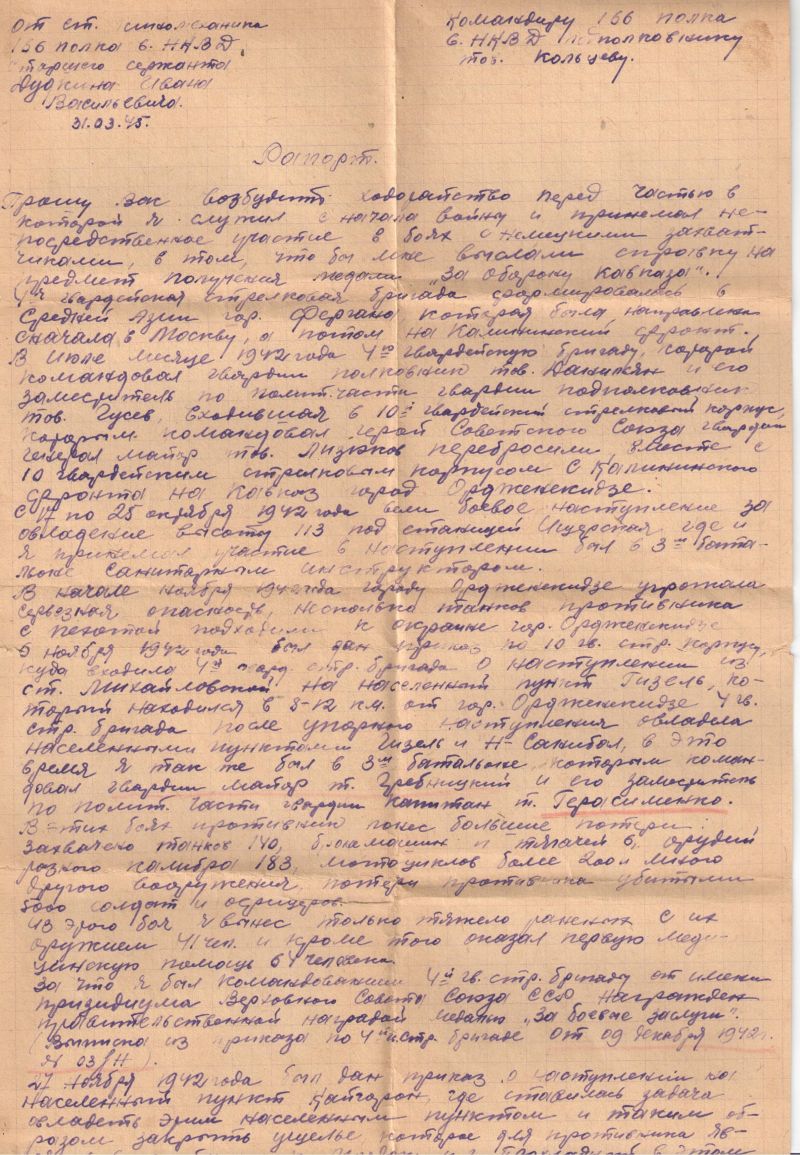 от ст. киномеханика
156 полка в. НКВД
старшего сержанта
Дудкина Ивана
Васильевича.
31.03.45.
Командиру 156 полка
в. НКВД подполковнику
тов. Кольцеву.
Рапорт.
Прошу Вас возбудить ходотайство перед частью в
которой я служил с начала войны и принемал не-
посредственное участие в боях с немецкими захват-
чиками, в том, что бы мне выслали справку на
предмет получения медали „За оборону Кавказа“.
4я гвардейская стрелковая бригада формировалась в
Средней Азии гор. Фергана которая была направлена
сначала в Москву, а потом на Калининский фронт.
В июле месяце 1942 года 4ю гвардейскую бригаду, которой
командовал гвардии полковник тов. Данильян и его
заместитель по полит.части гвардии подполковник
тов. Гусев, входившая в 10й гвардейский стрелковый корпус,
которым командовал герой Советского Союза гвардии
генерал майор тов. Лизюков перебросили вместе с
10 гвардейским стрелковым корпусом с Калининского
фронта на Кавказ город Орджекекидзе.
С 17 по 25 октября 1942 года вели боевое наступление за
овладение высоты 113 под станицей Ищерская где и
я принемал участие в наступлении был в 3м бата-
льоне санитарным инструктором.
В начале ноября 1942 года городу Орджекекидзе угрожала
серьезная опасность, несколько танков противника
с пехотой подходили к окраине гор. Орджекекидзе
5 ноября 1942 года был дан приказ по 10 гв. стр. корпусу,
куда входила 4я гвард. стр. бригада о наступлении из
ст. Михайловской на населенный пункт Гизель, ко-
торый находился в 8-12 км. от гор. Орджекекидзе 4 гв.
стр. бригада после упорного наступления овладела
населенными пунктами Гизель и Н-Санибал, в это
время я так же был в 3м батальоне которым коман-
довал гвардии майор т. Гребницкий и его заместитель
по полит. части гвардии капитан т. Герасименко.
В этих боях противник понес большие потери:
захвачено танков 140, бронемашин и тягачей 6, орудий
разного калибра 183, мотоциклов более 200 и много
другого вооружения, потери противника убитыми
5000 солдат и офицеров.
Из этого боя я вынес только тяжело раненых с их
оружием 41 чел. и кроме того оказал первую меди-
цинскую помощь 64 человека.
За что я был командованием 4й гв. стр. бригады от имени
призидиума Верховного Совета Союза ССР награжден
правительственной наградой медалью „За боевые заслуги“.
(Выписка из приказа по 4 гв. стр. бригаде от 09 декабря 1942г.
№ 03/Н).
27 ноября 1942 года был дан приказ о наступлении на
населенный пункт Кайтарон, где ставилась задача
овладеть этим населенным пунктом и таким об-
разом закрыть ущелье которое для противника яв-